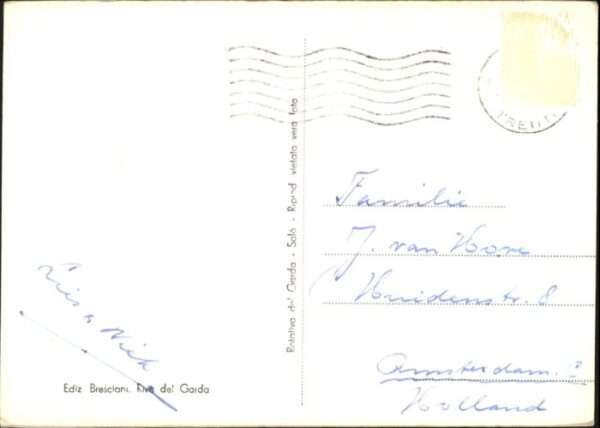 Lies & Nick
Ediz Bresciani. Riva del Garda
Rotativa del Garda - Salò - Riprod vietata vera foto
TRENTO
Familie
J. van Hove
Huidenstr. 8
Amsterdam.
Holland